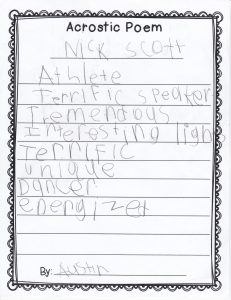 Acrostic Poem
Nick Scott
Athlete
Terrific speaker
Tremendous
Interesting light
Terrific
unique
Dancer
energizer
By: Austin